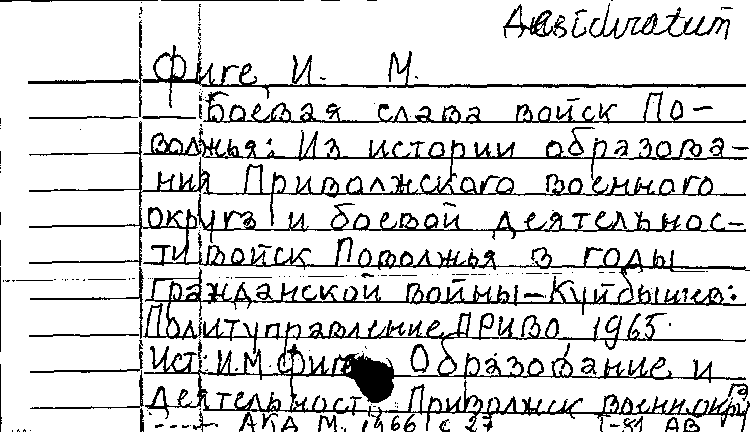 Desideratum
Фиге, И. М.
Боевая слава войск По-
волжья: Из истории образова-
ния Приволжского военного
округа и боевой деятельнос-
ти войск Поволжья в годы
гражданской войны - Куйбышев:
Политуправление ПРИВО, 1965.
Ист: И.М. Фиге Образование и
деятельность Приволжск военн окр
АКД М., 1966 с 27